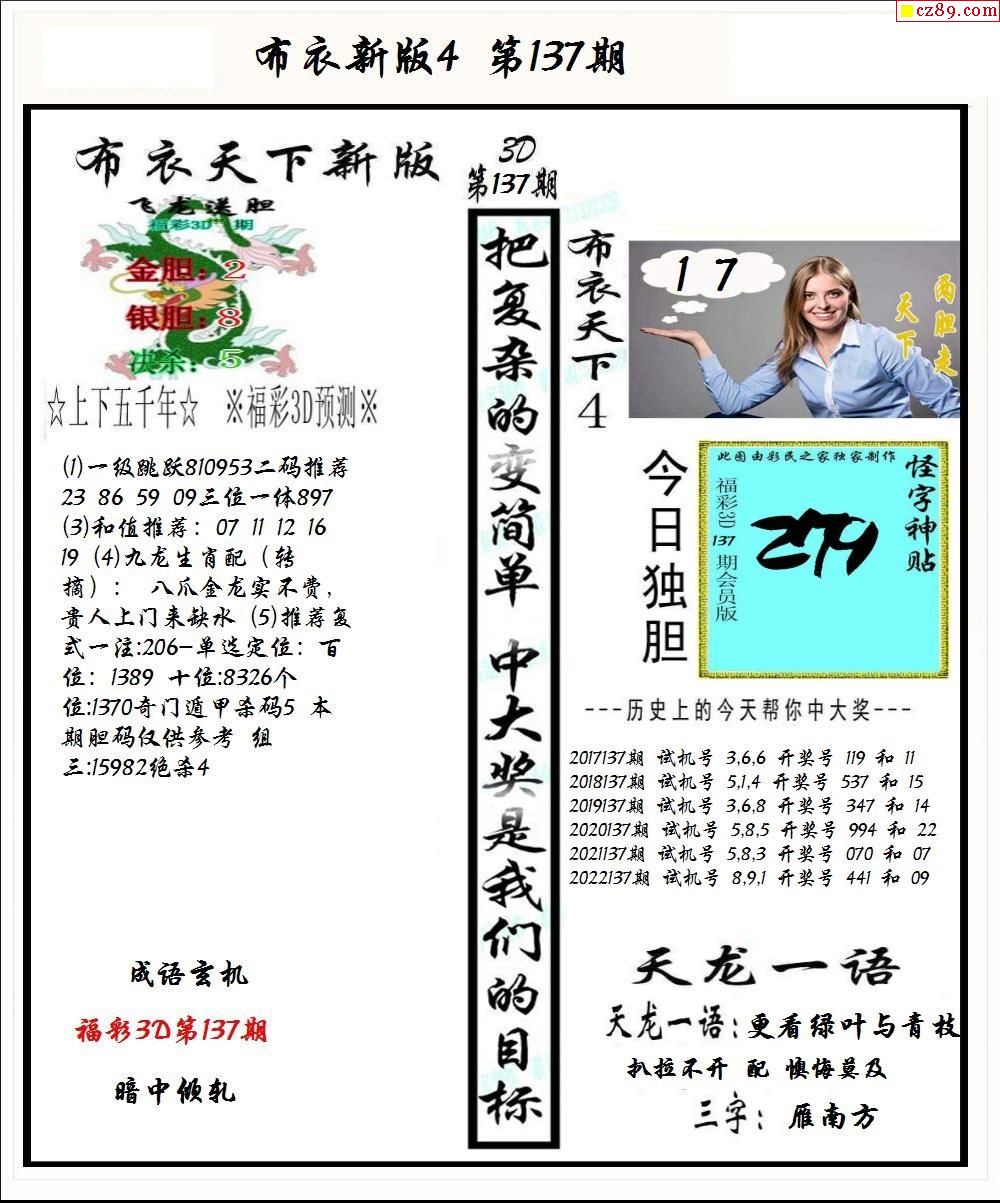 cz89.com
布衣新版4 第137期
布衣天下新版
飞龙送胆
福彩3D 期
金胆：2
银胆：8
决杀：5
☆上下五千年☆ ※福彩3D预测※
⑴一级跳跃810953二码推荐
23 86 59 09三位一体897
⑶和值推荐：07 11 12 16
19 ⑷九龙生肖配（转
摘）： 八爪金龙实不费，
贵人上门来缺水 ⑸推荐复
式一注:206-单选定位：百
位：1389 十位:8326个
位:1370奇门遁甲杀码5 本
期胆码仅供参考 组
三:15982绝杀4
成语玄机
福彩3D第137期
暗中倾轧
3D
第137期
把复杂的变简单 中大奖是我们的目标
布衣天下4
17
两胆走
天下
今日独胆
此图由彩民之家独家制作
怪字神贴
福彩3D 137 期会员版
---历史上的今天帮你中大奖---
2017137期 试机号 3,6,6 开奖号 119 和 11
2018137期 试机号 5,1,4 开奖号 537 和 15
2019137期 试机号 3,6,8 开奖号 347 和 14
2020137期 试机号 5,8,5 开奖号 994 和 22
2021137期 试机号 5,8,3 开奖号 070 和 07
2022137期 试机号 8,9,1 开奖号 441 和 09
天龙一语
天龙一语：更看绿叶与青枝
扒拉不开 配 懊悔莫及
三字： 雁南方